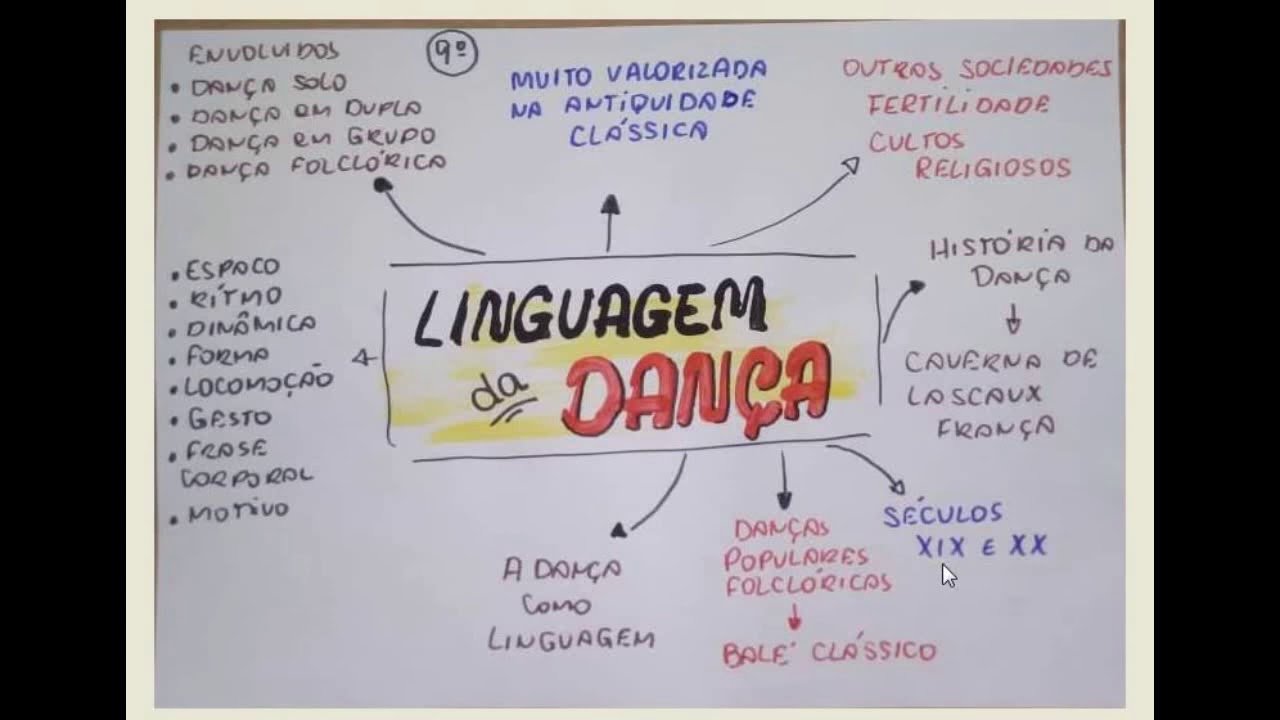 ENVOLVIDOS
• DANÇA SOLO
• DANÇA EM DUPLA
• DANÇA EM GRUPO
• DANÇA FOLCLÓRICA
9º
MUITO VALORIZADA
NA ANTIQUIDADE
CLÁSSICA
OUTRAS SOCIEDADES
FERTILIDADE
CULTOS
RELIGIOSOS
• ESPACO
• RÍTMO
• DINÂMICA
• FORMA
• LOCOMOÇÃO
• GESTO
• FRASE
CORPORAL
• MOTIVO
LINGUAGEM
da DANÇA
HISTÓRIA DA
DANÇA
CAVERNA DE
LASCAUX
FRANÇA
A DANÇA
COMO
LINGUAGEM
DANÇAS
POPULARES
FOLCLÓRICAS
BALÉ CLÁSSICO
SÉCULOS
XIX E XX